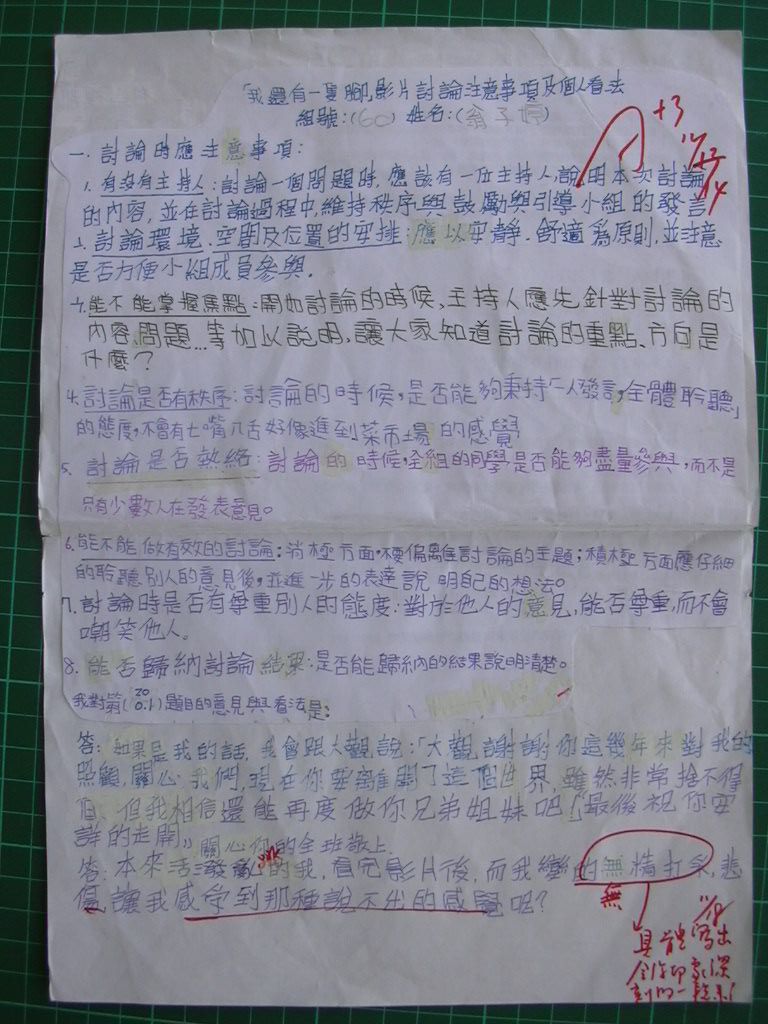 「我還有一隻腳」影片討論注意事項及個人看法
組號:(60) 姓名:(翁子婷)
A +3
一、討論時應注意事項:
1. 有沒有主持人:討論一個問題時,應該有一位主持人,說明本次討論
的內容,並在討論過程中,維持秩序與鼓勵與引導小組的發言
2. 討論環境、空間及位置的安排:應以安靜、舒適為原則,並注意
是否方便小組成員參與。
3. 能不能掌握焦點:開始討論的時候,主持人應先針對討論的
內容、問題...等加以說明,讓大家知道討論的重點、方向是
什麼?
4. 討論是否有秩序:討論的時候,是否能夠秉持「一人發言,全體聆聽」
的態度,不會有七嘴八舌好像進到菜市場的感覺
5. 討論是否熱絡:討論的時候,全組的同學是否能夠盡量參與,而不是
只有少數人在發表意見。
6. 能不能做有效的討論:消極方面,不要偏離討論的主題;積極方面應仔細
的聆聽別人的意見後,並進一步的表達說明自己的想法。
7. 討論時是否有尊重別人的態度:對於他人的意見,能否尊重,而不會
嘲笑他人。
8. 能否歸納討論結果:是否能歸納的結果說明清楚。
我對第(20 0.1)題目的意見與看法是:
答:如果是我的話,我會跟大觀說:「大觀謝謝你這幾年來對我的
照顧、關心我們,現在你要離開了這個世界,雖然非常捨不得
但,但我相信還能再度做你兄弟姐妹吧!「最後祝你安
詳的走開」關心你的全班敬上
答:本來活潑亂的我,看完影片後,而我變的無精打采,悲
傷讓我感學到那種說不出的感覺呢?
無
具體寫出
令你印象深
刻的一